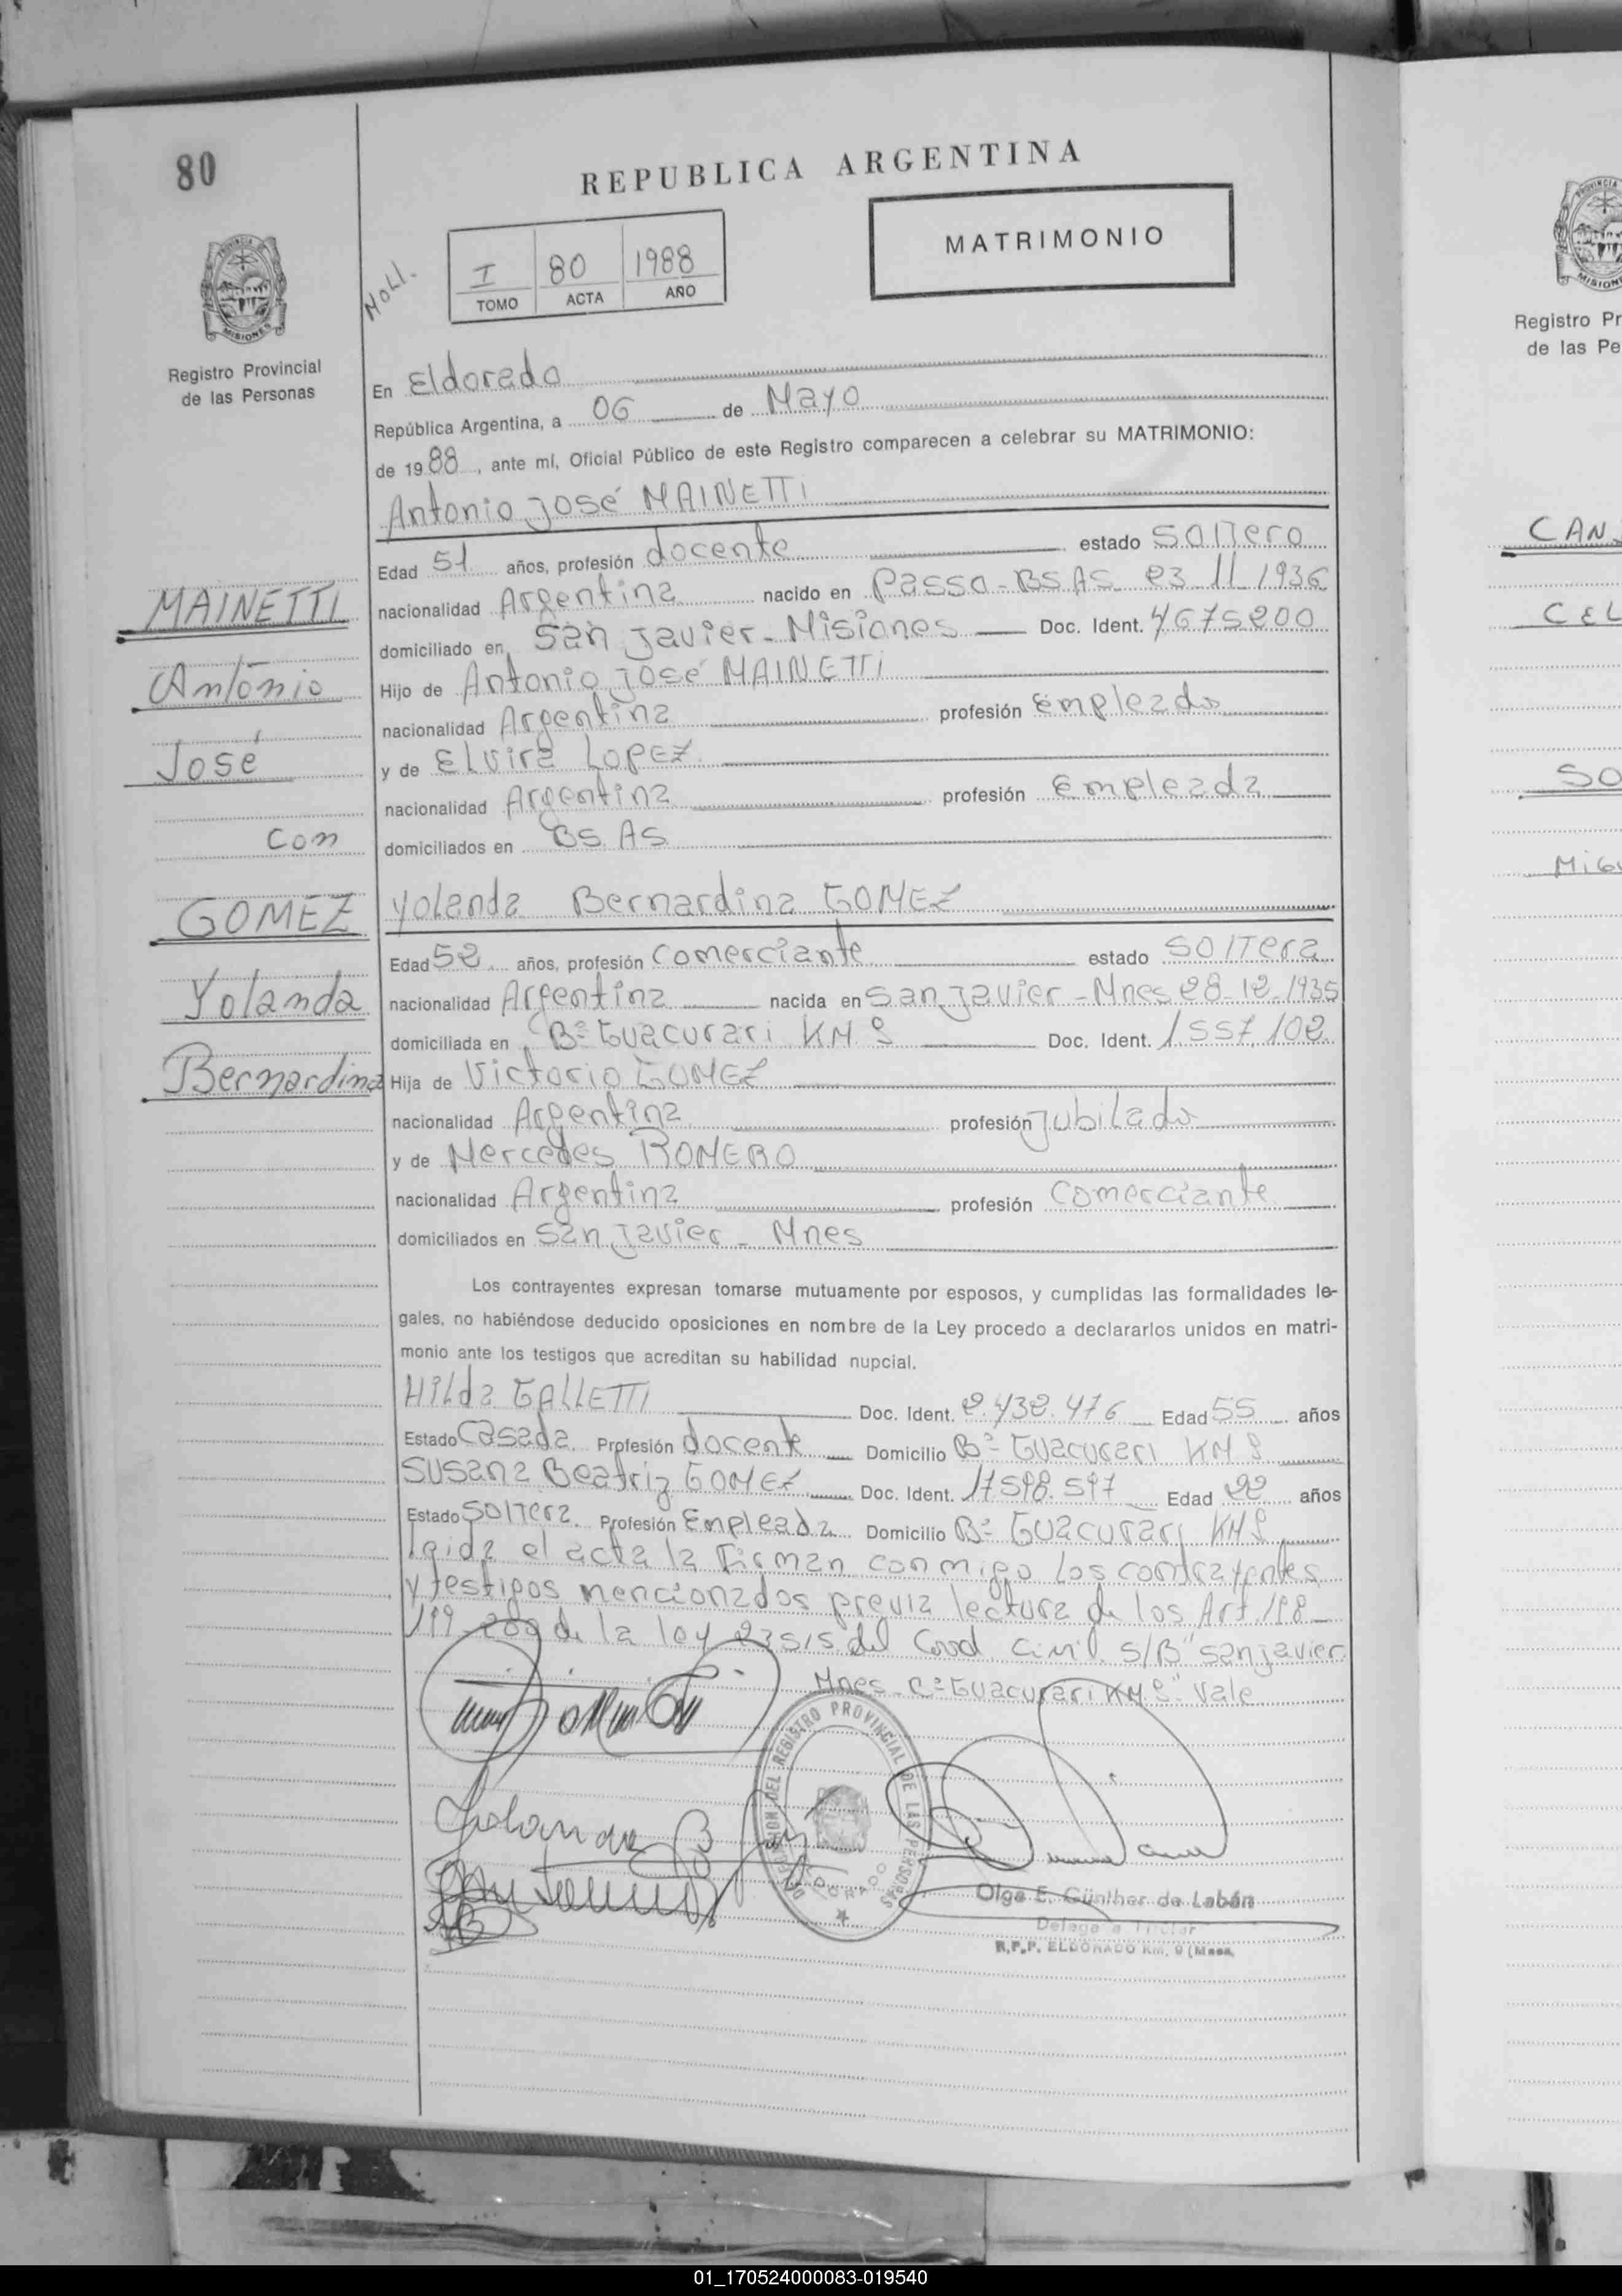 80
REPUBLICA ARGENTINA
MATRIMONIO
I 80 1988
TOMO ACTA AÑO
PROVINCIA DE MISIONES
Registro Provincial
de las Personas
En Eldorado
República Argentina, a 06 de Mayo
de 1988, ante mí, Oficial Público de este Registro comparecen a celebrar su MATRIMONIO:
Antonio José MAINETTI
Edad 51 años, profesión docente estado Soltero
nacionalidad Argentina nacido en Passo-BS AS 23 11 1936
domiciliado en San Javier-Misiones Doc. Ident. 4675200
Hijo de Antonio José MAINETTI
nacionalidad Argentina profesión Empleado
y de Elvira LOPEZ
nacionalidad Argentina profesión Empleada
domiciliados en BS AS
Yolanda Bernardina GOMEZ
Edad 52 años, profesión Comerciante estado Soltera
nacionalidad Argentina nacida en San Javier-Mnes 28-12-1935
domiciliada en Bº Guacurari KM 9 Doc. Ident. 1.557.102
Hija de Victorio GOMEZ
nacionalidad Argentina profesión Jubilado
y de Mercedes ROMERO
nacionalidad Argentina profesión Comerciante
domiciliados en San Javier - Mnes
MAINETTI
Antonio
José
con
GOMEZ
Yolanda
Bernardina
Los contrayentes expresan tomarse mutuamente por esposos, y cumplidas las formalidades le-
gales, no habiéndose deducido oposiciones en nombre de la Ley procedo a declararlos unidos en matri-
monio ante los testigos que acreditan su habilidad nupcial.
Hilda GALLETTI Doc. Ident. 2.432.476 Edad 55 años
Estado Casada Profesión docente Domicilio Bº Guacurari KM 9
Susana Beatriz GOMEZ Doc. Ident. 17.598.597 Edad 22 años
Estado Soltera Profesión Empleada Domicilio Bº Guacurari KM 9
leida el acta la Firman conmigo los contrayentes
y testigos mencionados previa lectura de los Art 198-
199-200 de la ley 23515 del Cood Civil S/B "San Javier
Mnes - Guacurari KM 9" Vale
DELEGACION DEL REGISTRO PROVINCIAL DE LAS PERSONAS
ELDORADO
Olga E. Günther de Labán
Delegada Titular
R.P.P. ELDORADO KM. 9 (Mnes.
Registro Pr
de las Pe
CAN
CEL
SO
MIGU
01_170524000083-019540